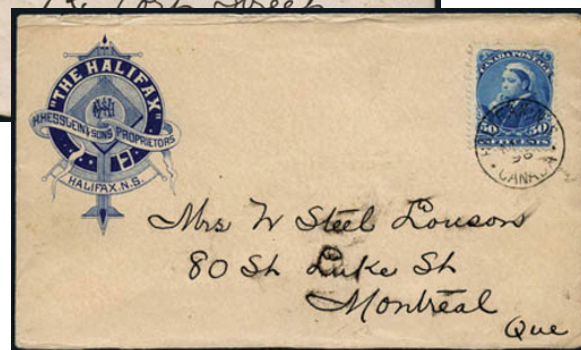 Street
"THE HALIFAX"
H.HESSLEIN & SONS PROPRIETORS
HALIFAX.N.S.
CANADA POSTAGE
50 50
FIFTY CENTS
98
CANADA
Mrs W Steel Lousons
80 St Luke St
Montreal
Que